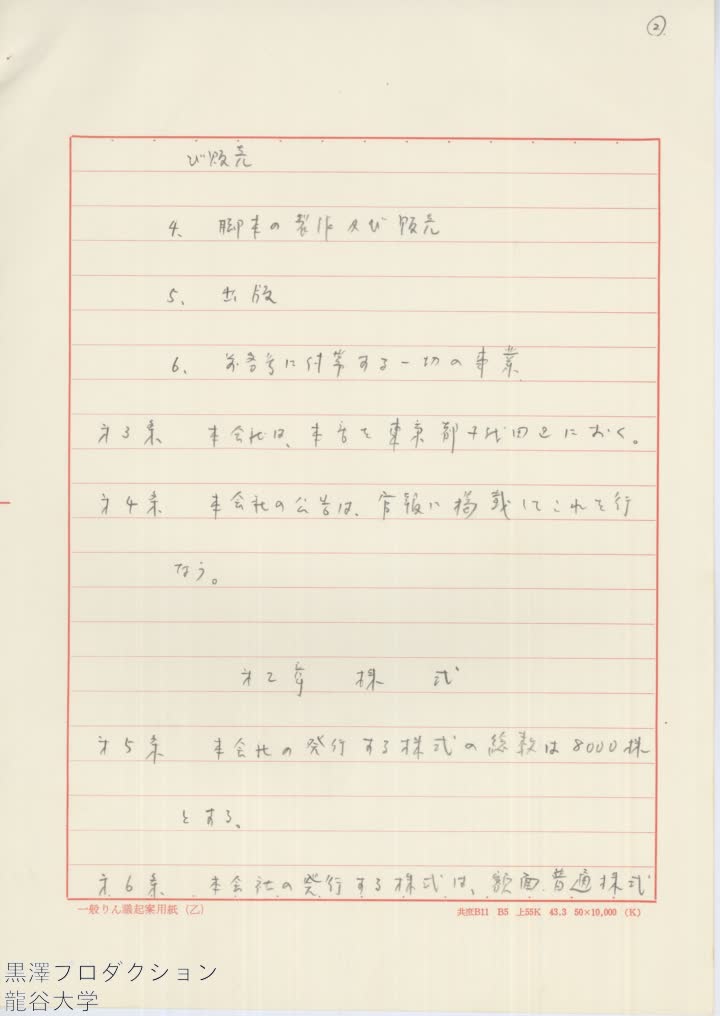 ②
び販売
4、 脚本の製作及び販売
5、 出版
6、 前各号に付帯する一切の事業
才3条 本会社は、本店を東京都千代田区におく。
才4条 本会社の公告は、官報に掲載してこれを行
なう。
才2章 株 式
才5条 本会社の発行する株式の総数は8000株
とする、
才6条 本会社の発行する株式は、額面普通株式
一般りん議起案用紙(乙)
共庶B11 B5 上55K 43.3 50×10,000 (K)
黒澤プロダクション
龍谷大学